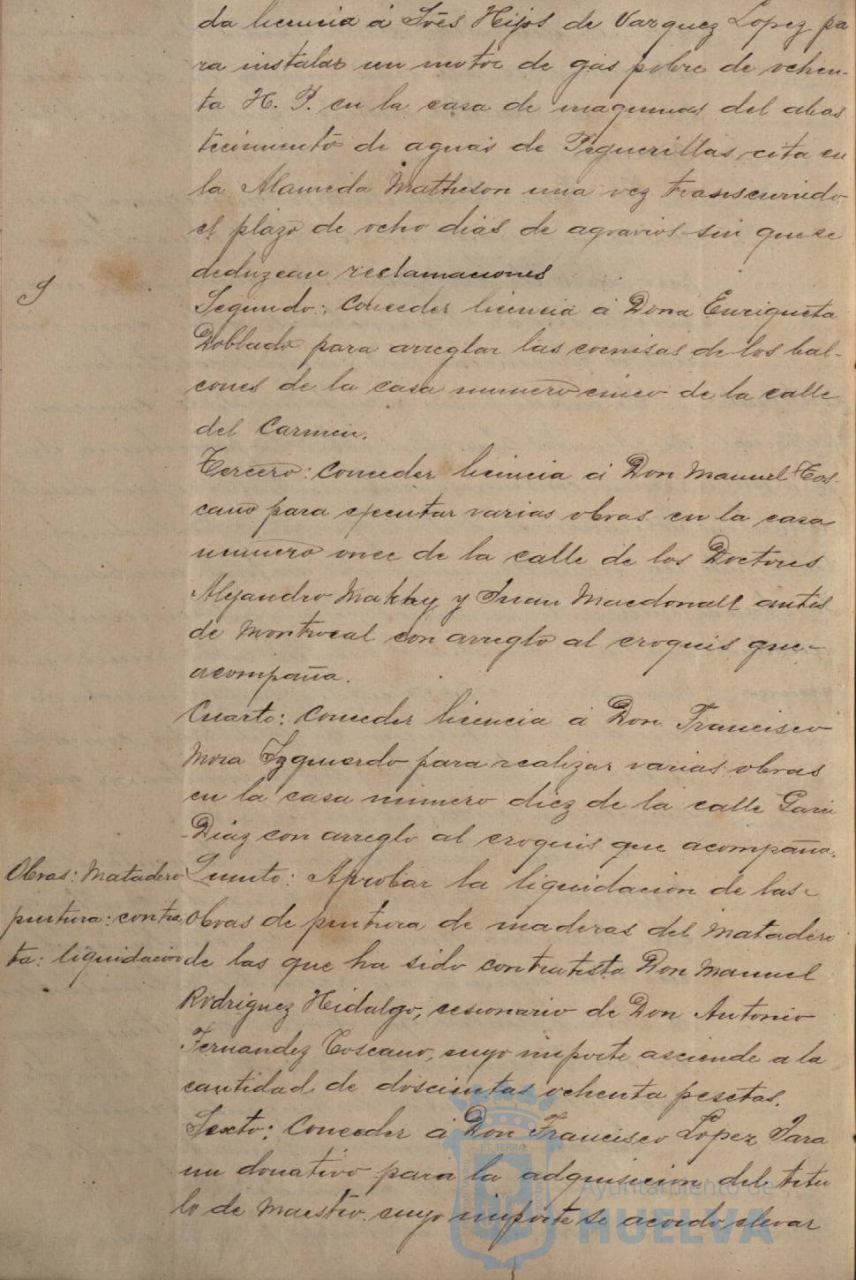 da licencia á Tres Hijos de Vazquez Lopez pa
ra instalar un motor de gas pobre de ochen-
ta H. P. en la casa de maquinas del abas
tecimiento de aguas de Peguerillas, cita en
la Alameda Matheson una vez transcurrido
el plazo de ocho dias de agravios sin que se
deduzcan reclamaciones
Segundo: Conceder licencia á Dona Enriqueta
Doblado para arreglar las cornisas de los bal-
cones de la casa numero cinco de la calle
del Carmen.
Tercero: Conceder licincia á Don Manuel Tos-
cano para ejecutar varias obras en la casa
numero once de la calle de los Doctores
Alejandro Makhy y Juan Macdonall antes
de Montrocal con arreglo al croquis que-
acompaña.
Cuarto: Conceder licencia á Don Francisco
Mora Izquierdo para realizar varias obras
en la casa número diez de la calle Garci
Diaz con arreglo al croquis que acompaña.
Obras: Matadero
pintura: contra
ta: liquidacion
Quinto: Aprobar la liquidacion de las-
obras de pintura de maderas del Matadero
de las que ha sido contratista Don Manuel
Rodriguez Hidalgo, cesionario de Don Antonio
Fernandez Toscano, cuyo importe asciende a la
cantidad de doscientas ochenta pesetas.
Sexto: Conceder á Don Francisco Lopez Jara
un donativo para la adquisicion del titu
lo de Maestro cuyo importe se acordo elevar
Ayuntamiento de
HUELVA